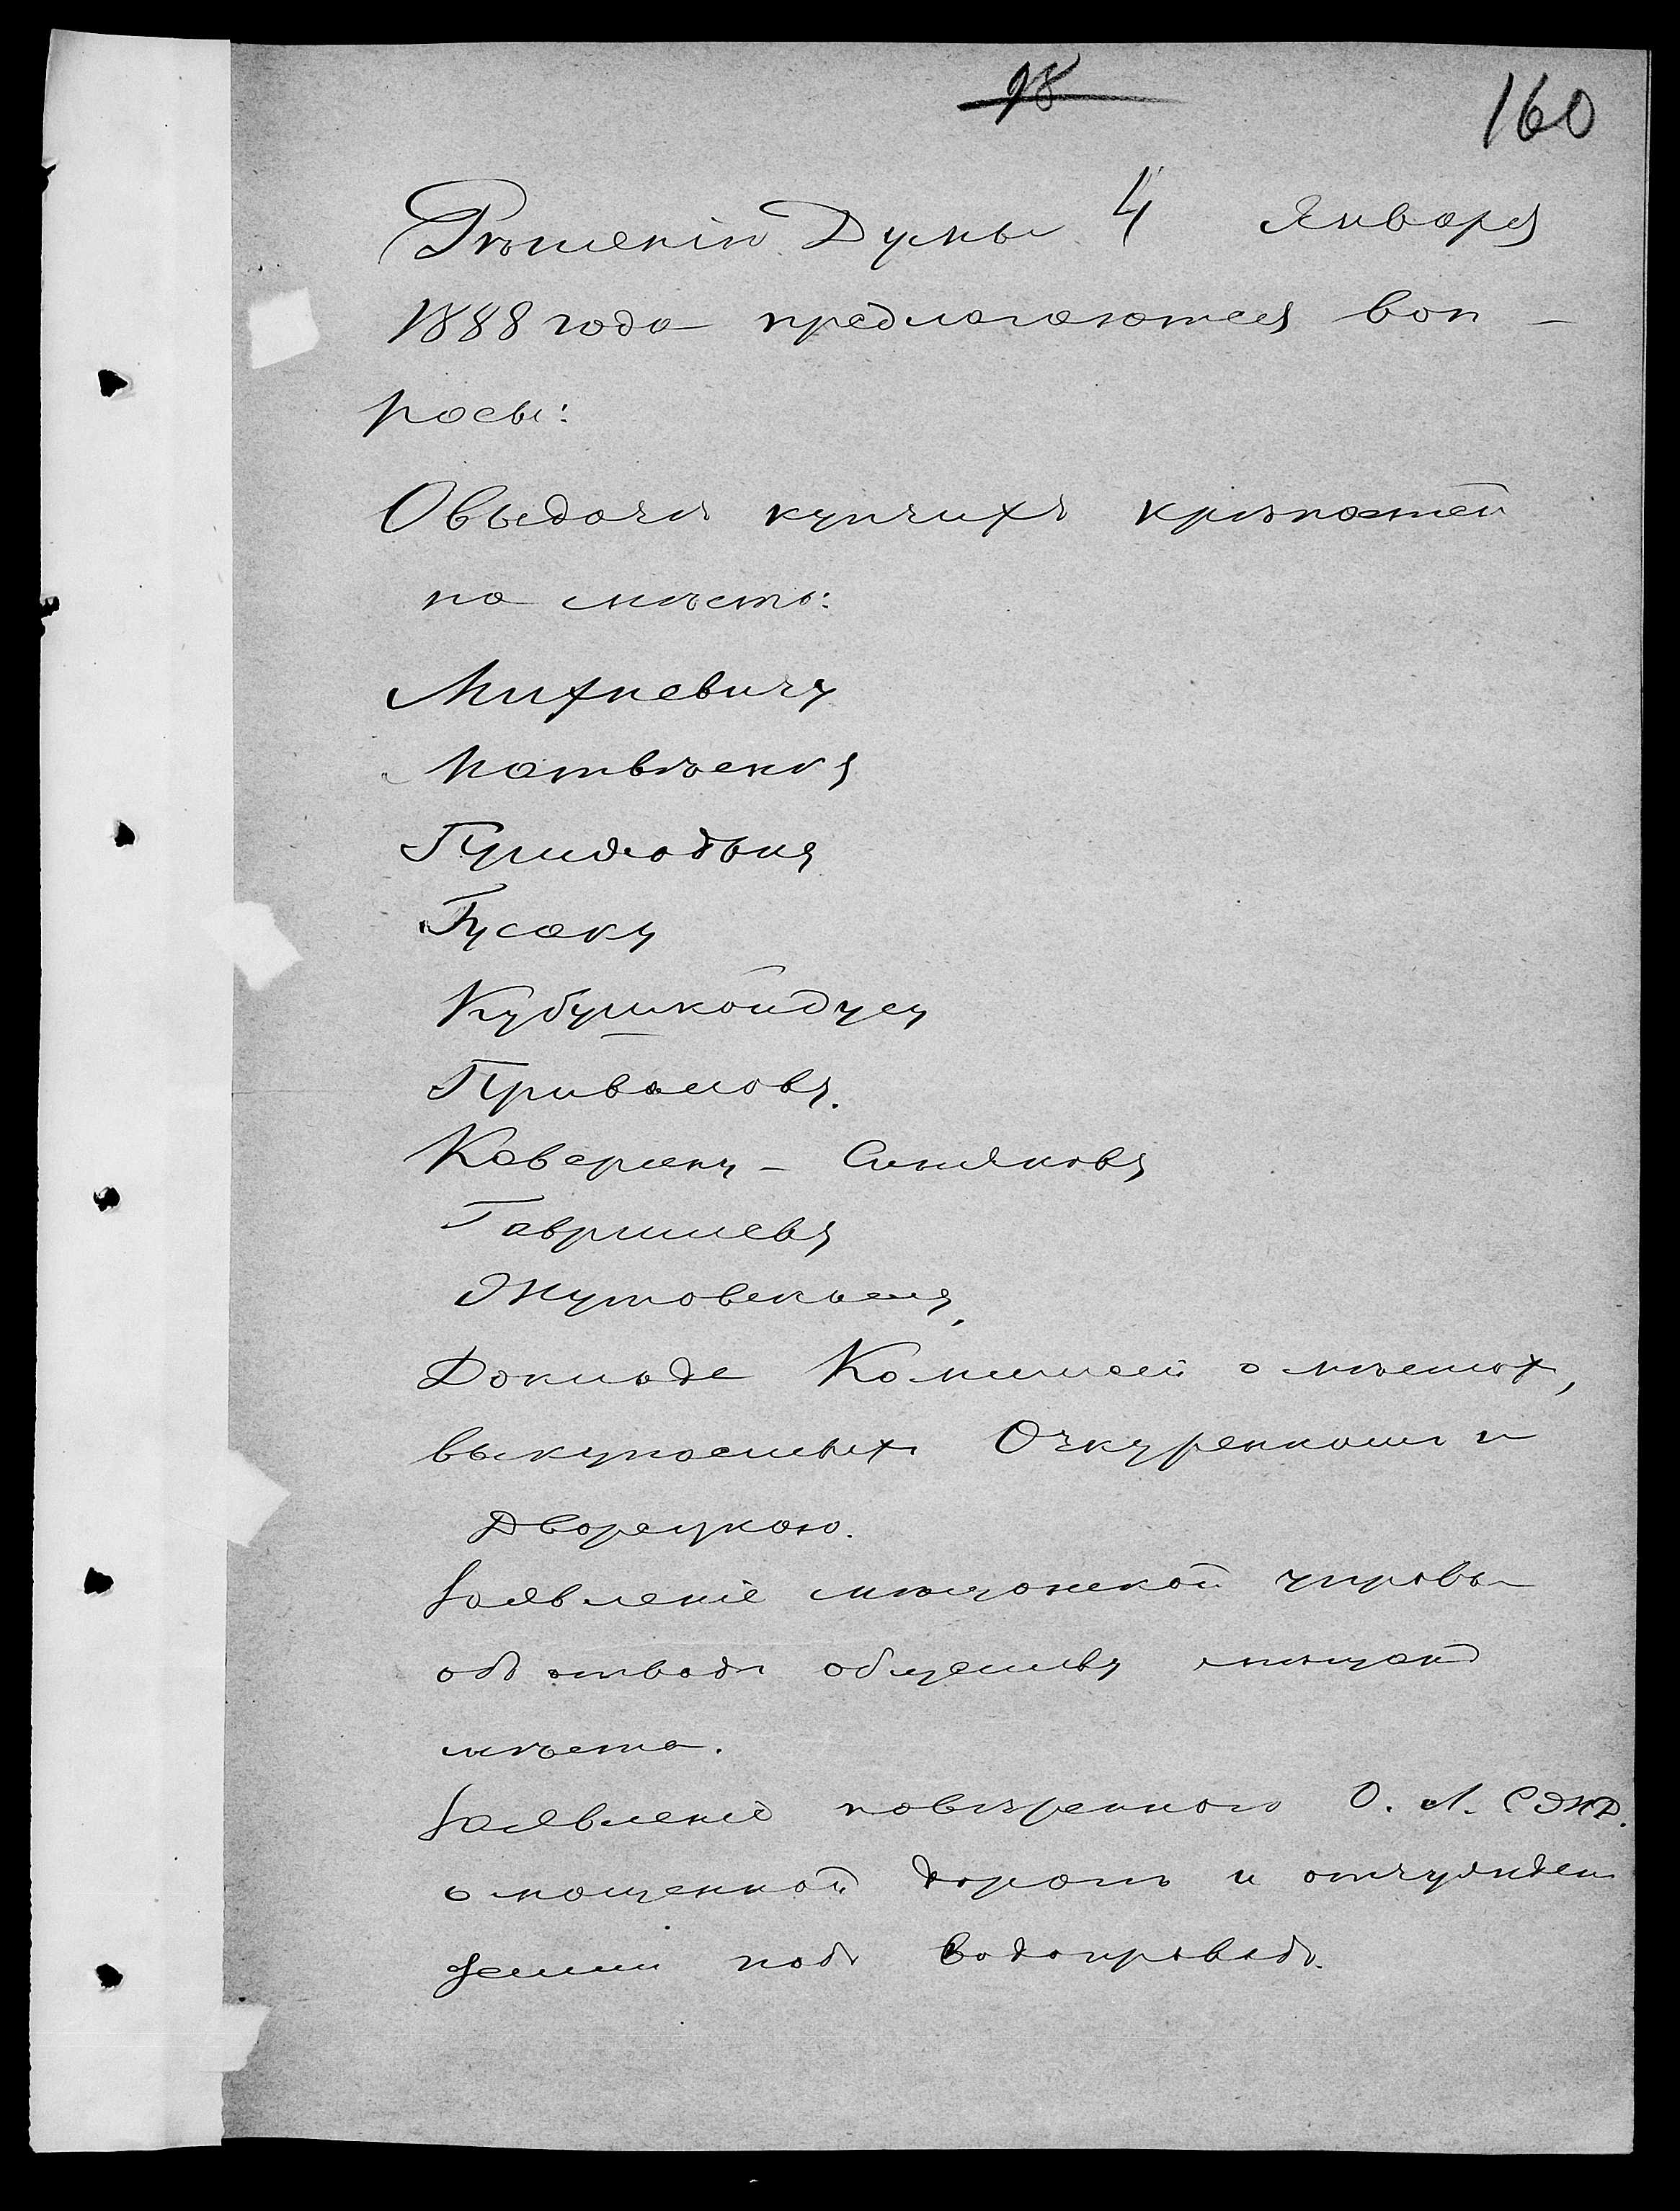 98
160
Рѣшенію Думы 4 Января
1888 года предлагаются воп-
росы:
О выдачѣ купчихъ крѣпостей
на мѣста:
Михневичу
Матвѣенку
Гусаку
Привалову.
Каверину - Синякову
Гаврилеву
Жутовскому,
Докладъ Комиссіи о мѣстах,
выкупаемыхъ Очкуренкомъ и
Дворецкою.
Заявленіе мѣщанской управы
объ отводѣ обществу мѣщанъ
мѣста.
Заявленіе повѣреннаго О. Л. СЖД.
о мощенной дорогѣ и отчужден
земли подъ водопроводъ.